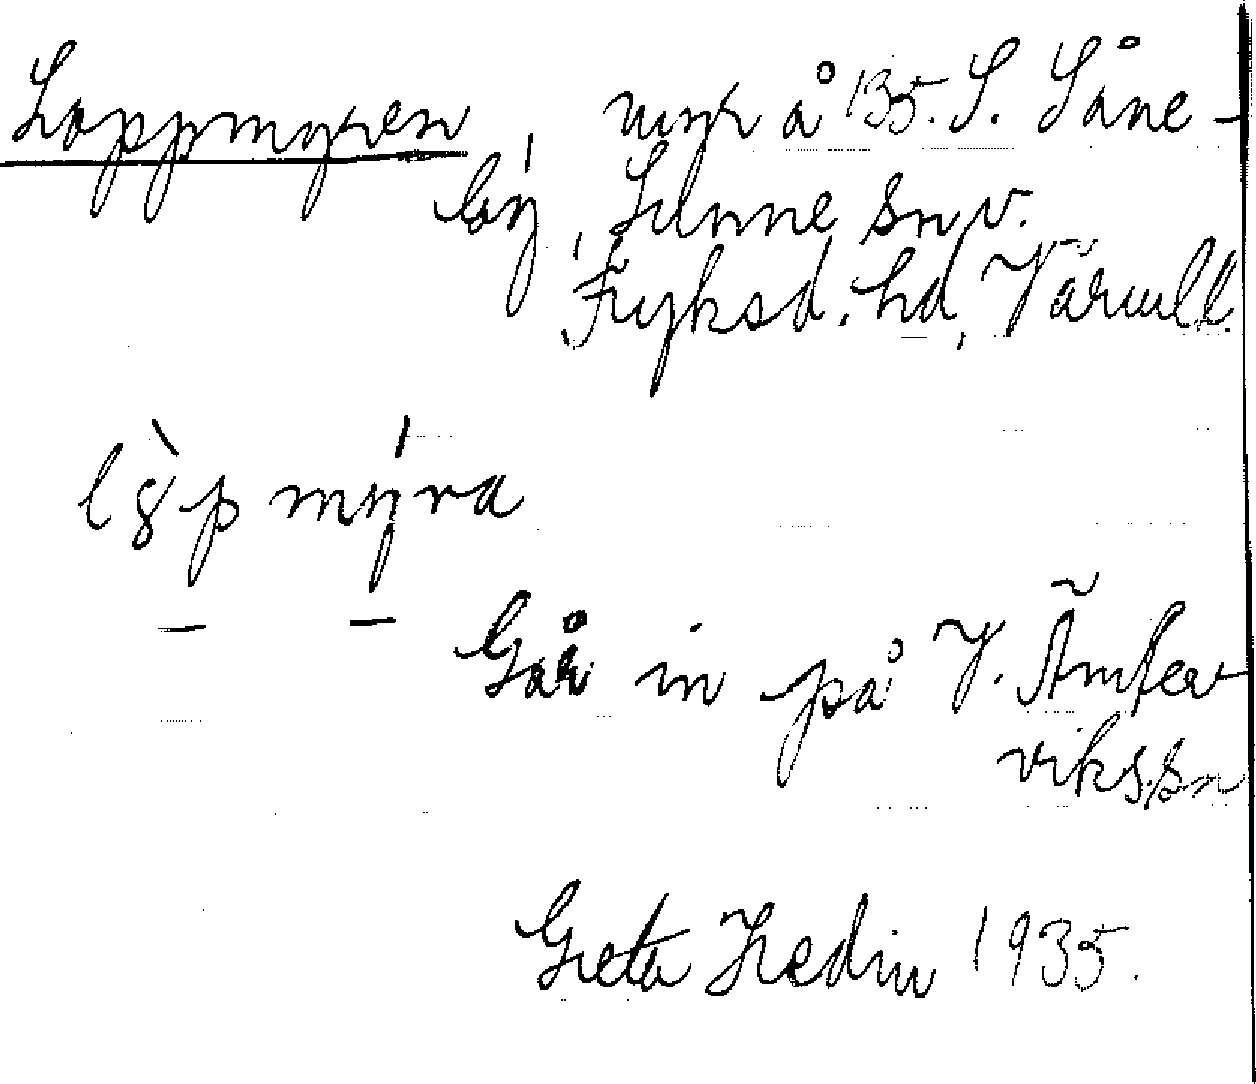 Loppmyren, myr å 135. S. Såne-
by, Sunne sn v.
Fryksd. hd, Värmll.
l8̀p mýra
Går in på V. Ämter-
viks sn
Greta Hedin 1935.